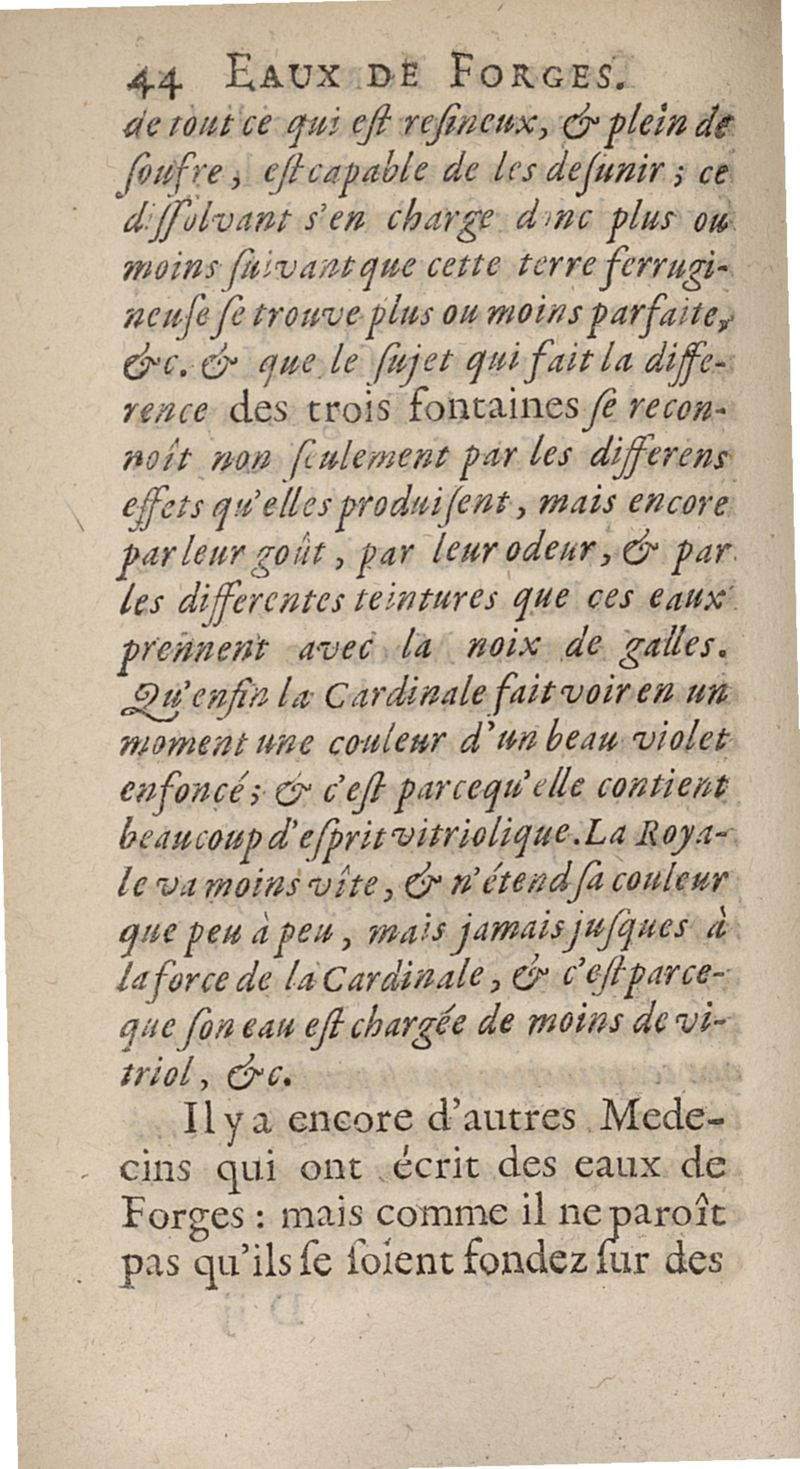 44 EAUX DE FORGES.
de tout ce qui eſt reſineux, & plein de
ſoufre, eſt capable de les deſunir; ce
diſſolvant s'en charge donc plus ou
moins ſuivant que cette terre ferrugi-
neuſe ſe trouve plus ou moins parfaite,
&c. & que le ſujet qui fait la diffe-
rence des trois fontaines ſe recon-
noît non ſeulement par les differens
effets qu'elles produiſent, mais encore
par leur goût, par leur odeur, & par
les differentes teintures que ces eaux
prennent avec la noix de galles.
Qu'enfin la Cardinale fait voir en un
moment une couleur d'un beau violet
enfoncé; & c'eſt parcequ'elle contient
beaucoup d'eſprit vitriolique. La Roya-
le va moins vîte, & n'étend ſa couleur
que peu à peu, mais jamais juſques à
la force de la Cardinale, & c'eſt parce-
que ſon eau eſt chargée de moins de vi-
triol, &c.
Il y a encore d'autres Mede-
cins qui ont écrit des eaux de
Forges : mais comme il ne paroît
pas qu'ils ſe ſoient fondez ſur des